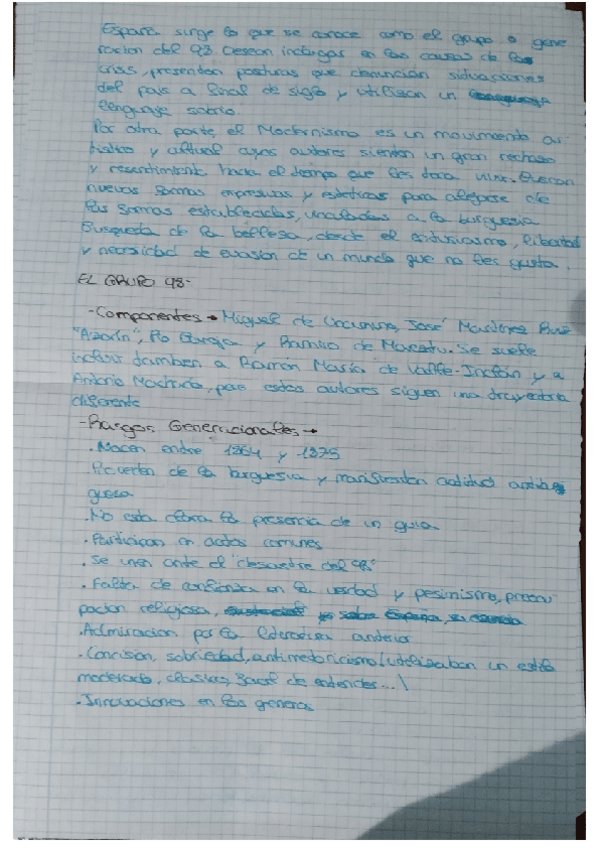 España surge lo que se conoce como el grupo o gene
racion del 98. Desean indargar en las causas de la
crisis, presentan posturas que denuncian situaciones
del pais a final de siglo y utilizan un
lenguaje sobrio.
Por otra parte, el Modernismo es un movimiento ar-
tistico y cultural cuyos autores sienten un gran rechazo
y resentimiento hacia el tiempo que les toca vivir. Buscan
nuevas formas expresivas y esteticas para alejarse de
las formas establecidas, vinculadas a la burguesia
Busqueda de la belleza, desde el entusiasmo, libertad
y necesidad de evasión de un mundo que no les gusta.
EL GRUPO 98-
-Componentes → Miguel de Unamuno, José Martinez Ruiz
"Azorín", Pio Baroja y Ramiro de Maeztu. Se suele
incluir tambien a Ramón María de Valle-Inclán y a
Antonio Machado, pero estos autores siguen una trayectoria
diferente
-Rasgos Generacionales →
.Nacen entre 1864 y 1875
.Provienen de la burguesia y manifiestan actitud antibur
guesa
.No esta clara la presencia de un guia
.Participan en actos comunes
.Se unen ante el "desastre del 98"
.Falta de confianza en la verdad y pesimismo, preocu
pacion religiosa, sobre España, su
.Admiracion por la literatura anterior
.Concision, sobriedad, antirretoricismo (utilizaban un estilo
moderado, clasico, facil de entender...)
.Innovaciones en los generos